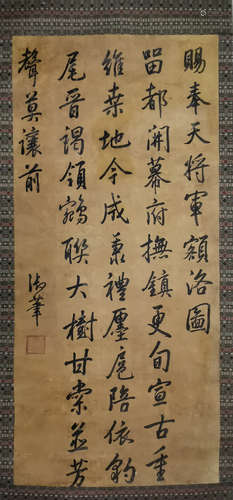 賜奉天將軍額洛圖
留都開幕府撫鎮更旬宣古重
維桑地今咸秉禮廛扈陪依豹
尾晉謁領鵷聯大樹甘棠並芳
聲莫讓前
御筆